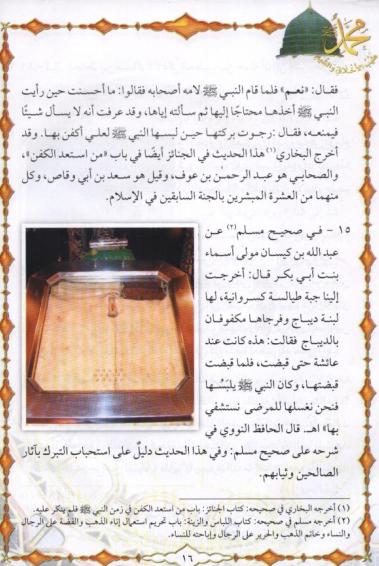 محمد ﷺ
فقال: «نعم» فلما قام النبي ﷺ لامه أصحابه فقالوا: ما أحسنت حين رأيت
النبي ﷺ أخذها محتاجًا إليها ثم سألته إياها، وقد عرفت أنه لا يسأل شيئًا
فيمنعه، فقال :رجوت بركتها حين لبسها النبي ﷺ لعلي أكفن بها. وقد
أخرج البخاري(١) هذا الحديث في الجنائز أيضًا في باب «من استعد الكفن»،
والصحابي هو عبد الرحمٰن بن عوف، وقيل هو سعد بن أبي وقاص، وكل
منهما من العشرة المبشرين بالجنة السابقين في الإسلام.
١٥ - في صحيح مسلم(٢) عن
عبد الله بن كيسان مولى أسماء
بنت أبي بكر قال: أخرجت
إلينا جبة طيالسة كسروانية، لها
لبنة ديباج وفرجاها مكفوفان
بالديباج فقالت: هذه كانت عند
عائشة حتى قبضت، فلما قبضت
قبضتها، وكان النبي ﷺ يلبَسُها
فنحن نغسلها للمرضى نستشفي
بها» اهـ. قال الحافظ النووي في
شرحه على صحيح مسلم: وفي هذا الحديث دليلٌ على استحباب التبرك بآثار
الصالحين وثيابهم.
(١) أخرجه البخاري في صحيحه: كتاب الجنائز: باب من استعد الكفن في زمن النبي ﷺ فلم ينكر عليه.
(٢) أخرجه مسلم في صحيحه: كتاب اللباس والزينة: باب تحريم استعمال إناء الذهب والفضة على الرجال
والنساء وخاتم الذهب والحرير على الرجال وإباحته للنساء.
١٦